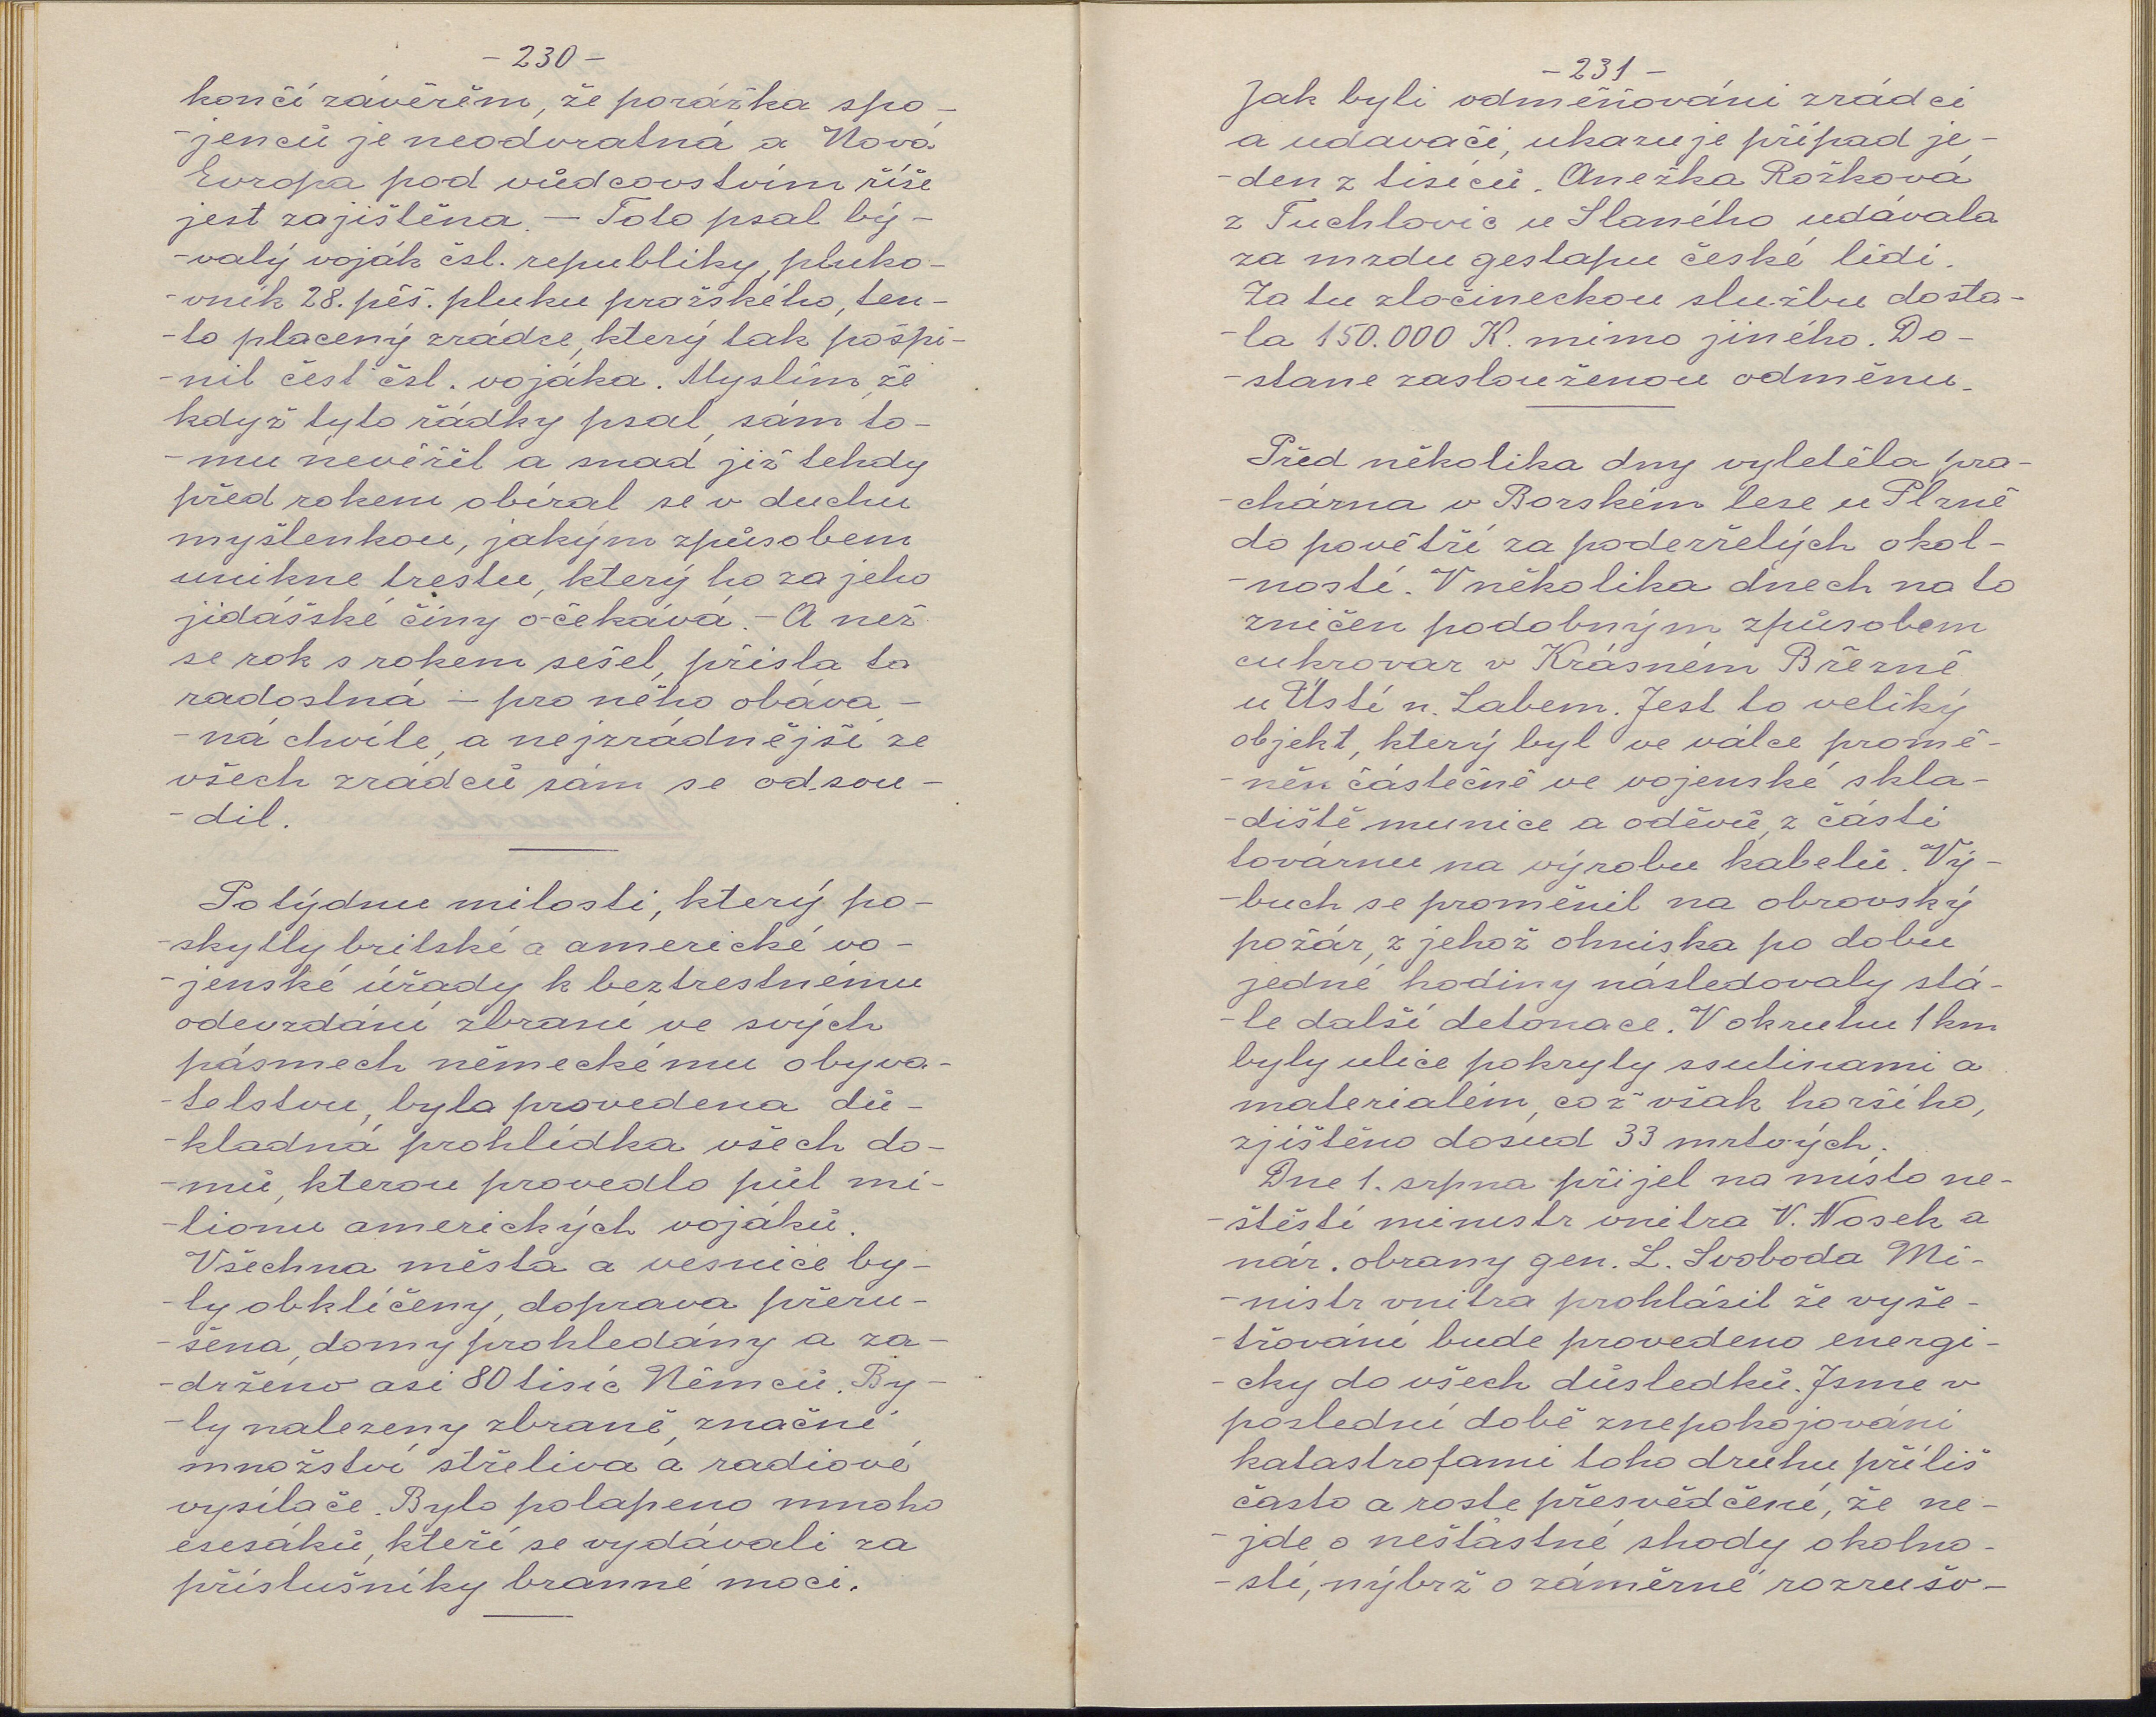 - 230 -
končí závěrěm, že porážka spo-
-jenců je neodvratná a Nová
Evropa pod vůdcovstvím říše
jest zajištěna. — Toto psal bý-
-valý voják čsl. republiky, pluko-
-vník 28. pěš. pluku pražského, ten-
-to placený zrádce, který tak pošpi-
-nil čest čsl. vojáka. Myslím, že
když tyto řádky psal, sám to-
-mu nevěřil a snad již tehdy
před rokem obíral se v duchu
myšlenkou, jakým způsobem
unikne trestu, který ho za jeho
jidášské činy očekává. - A než
se rok s rokem sešel, přišla ta
radostná - pro něho obáva-
-ná chvíle, a nejzrádnější ze
všech zrádců sám se odsou-
-dil.
Po týdnu milosti, který po-
-skytly britské a americké vo-
-jenské úřady k beztrestnému
odevzdání zbraní ve svých
pásmech německému obyva-
-telstvu, byla provedena dů-
-kladná prohlídka všech do-
-mů, kterou provedlo půl mi-
-lionu amerických vojáků.
Všechna města a vesnice by-
-ly obklíčeny, doprava přeru-
-šena, domy prohledány a za-
-drženo asi 80 tisíc Němců. By-
-ly nalezeny zbraně, značné
množství střeliva a radiové
vysílače. Bylo polapeno mnoho
esesáků, kteří se vydávali za
příslušníky branné moci.
- 231 -
Jak byli odměňováni zrádci
a udavači, ukazuje případ je-
-den z tisíců. Anežka Rožková
z Tuchlovic u Slaného udávala
za mzdu gestapu české lidi.
Za tu zločineckou službu dosta-
-la 150.000 K. mimo jiného. Do-
-stane zaslouženou odměnu.
Před několika dny vyletěla pra-
-chárna v Borském lese u Plzně
do povětří za podezřelých okol-
-ností. V několika dnech na to
zničen podobným způsobem
cukrovar v Krásném Březně
u Ústí n. Labem. Jest to veliký
objekt, který byl ve válce promě-
-něn částečně ve vojenské skla-
-diště munice a oděvů, z části
továrnu na výrobu kabelů. Vý-
-buch se proměnil na obrovský
požár, z jehož ohniska po dobu
jedné hodiny následovaly stá-
-le další detonace. V okruhu 1 km
byly ulice pokryty ssutinami a
materialém, což však horšího,
zjištěno dosud 33 mrtvých.
Dne 1. srpna přijel na místo ne-
-štěstí ministr vnitra V. Nosek a
nár. obrany gen. L. Svoboda Mi-
-nistr vnitra prohlásil že vyše-
-třování bude provedeno energi-
-cky do všech důsledků. Jsme v
poslední době znepokojováni
katastrofami toho druhu příliš
často a roste přesvědčení, že ne-
-jde o nešťastné shody okolno-
-stí, nýbrž o záměrné rozrušo-